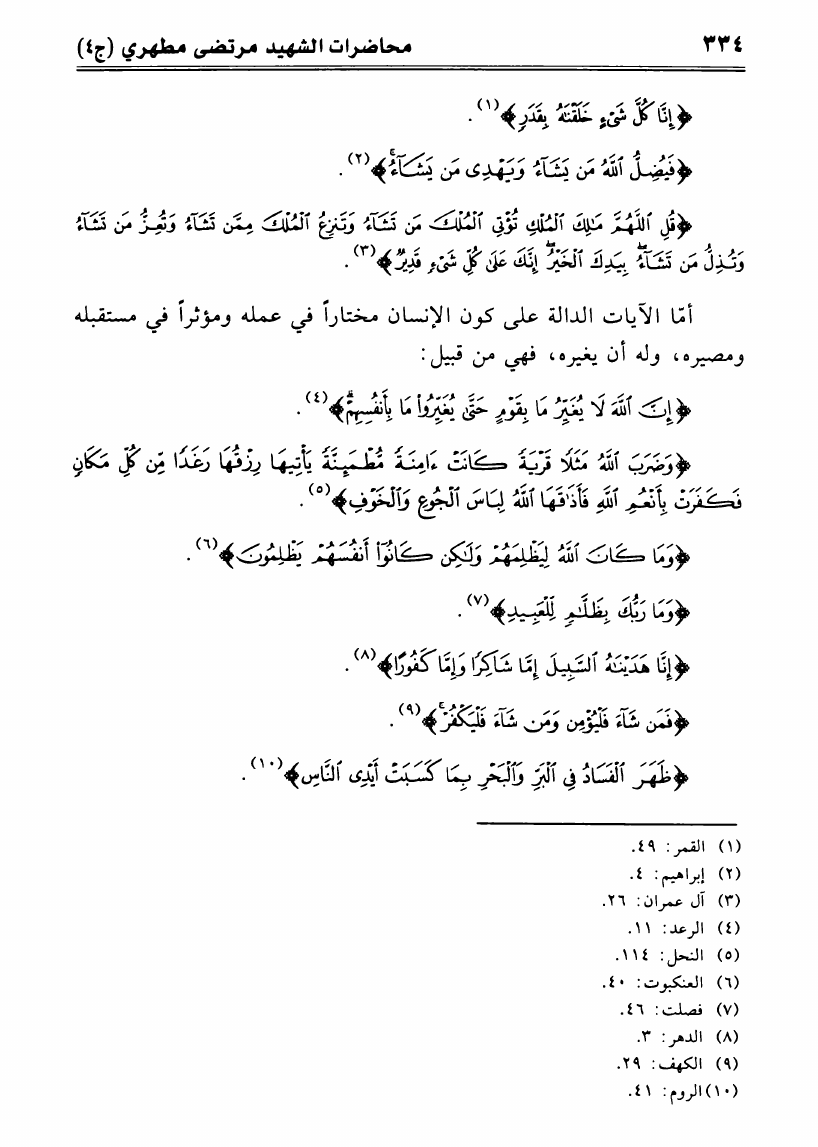 ٣٣٤ محاضرات الشهيد مرتضى مطهري (ج٤)
﴿إِنَّا كُلَّ شَىْءٍ خَلَقْنَٰهُ بِقَدَرٍ﴾(١).
﴿فَيُضِلُّ ٱللَّهُ مَن يَشَآءُ وَيَهْدِى مَن يَشَآءُ ۚ﴾(٢).
﴿قُلِ ٱللَّهُمَّ مَٰلِكَ ٱلْمُلْكِ تُؤْتِى ٱلْمُلْكَ مَن تَشَآءُ وَتَنزِعُ ٱلْمُلْكَ مِمَّن تَشَآءُ وَتُعِزُّ مَن تَشَآءُ
وَتُذِلُّ مَن تَشَآءُ ۖ بِيَدِكَ ٱلْخَيْرُ ۖ إِنَّكَ عَلَىٰ كُلِّ شَىْءٍ قَدِيرٌ﴾(٣).
أمّا الآيات الدالة على كون الإنسان مختاراً في عمله ومؤثراً في مستقبله
ومصيره، وله أن يغيره، فهي من قبيل:
﴿إِنَّ ٱللَّهَ لَا يُغَيِّرُ مَا بِقَوْمٍ حَتَّىٰ يُغَيِّرُوا۟ مَا بِأَنفُسِهِمْ ۗ﴾(٤).
﴿وَضَرَبَ ٱللَّهُ مَثَلًا قَرْيَةً كَانَتْ ءَامِنَةً مُّطْمَئِنَّةً يَأْتِيهَا رِزْقُهَا رَغَدًا مِّن كُلِّ مَكَانٍ
فَكَفَرَتْ بِأَنْعُمِ ٱللَّهِ فَأَذَٰقَهَا ٱللَّهُ لِبَاسَ ٱلْجُوعِ وَٱلْخَوْفِ﴾(٥).
﴿وَمَا كَانَ ٱللَّهُ لِيَظْلِمَهُمْ وَلَٰكِن كَانُوٓا۟ أَنفُسَهُمْ يَظْلِمُونَ﴾(٦).
﴿وَمَا رَبُّكَ بِظَلَّٰمٍ لِّلْعَبِيدِ﴾(٧).
﴿إِنَّا هَدَيْنَٰهُ ٱلسَّبِيلَ إِمَّا شَاكِرًا وَإِمَّا كَفُورًا﴾(٨).
﴿فَمَن شَآءَ فَلْيُؤْمِن وَمَن شَآءَ فَلْيَكْفُرْ ۚ﴾(٩).
﴿ظَهَرَ ٱلْفَسَادُ فِى ٱلْبَرِّ وَٱلْبَحْرِ بِمَا كَسَبَتْ أَيْدِى ٱلنَّاسِ﴾(١٠).
(١) القمر: ٤٩.
(٢) إبراهيم: ٤.
(٣) آل عمران: ٢٦.
(٤) الرعد: ١١.
(٥) النحل: ١١٤.
(٦) العنكبوت: ٤٠.
(٧) فصلت: ٤٦.
(٨) الدهر: ٣.
(٩) الكهف: ٢٩.
(١٠) الروم: ٤١.